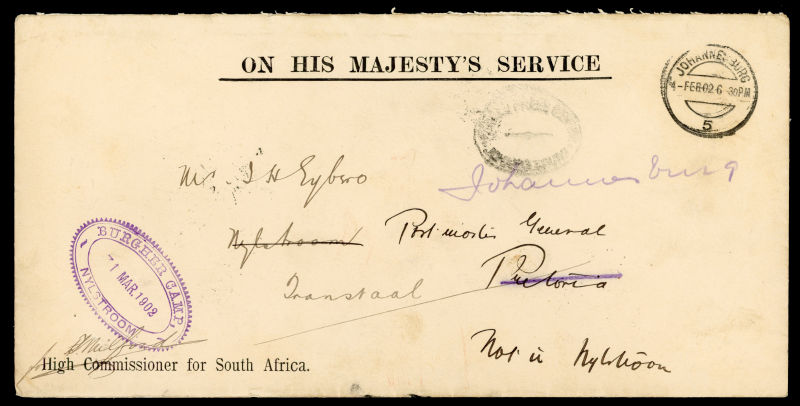 ON HIS MAJESTY'S SERVICE
JOHANNESBURG
FEB 02 6 30PM
5
Mr J H Eybers
Johannesburg
Nylstroom
Post master General
Transvaal
Pretoria
Not in Nylstroom
BURGHER CAMP.
1 MAR 1902
NYLSTROOM
High Commissioner for South Africa.